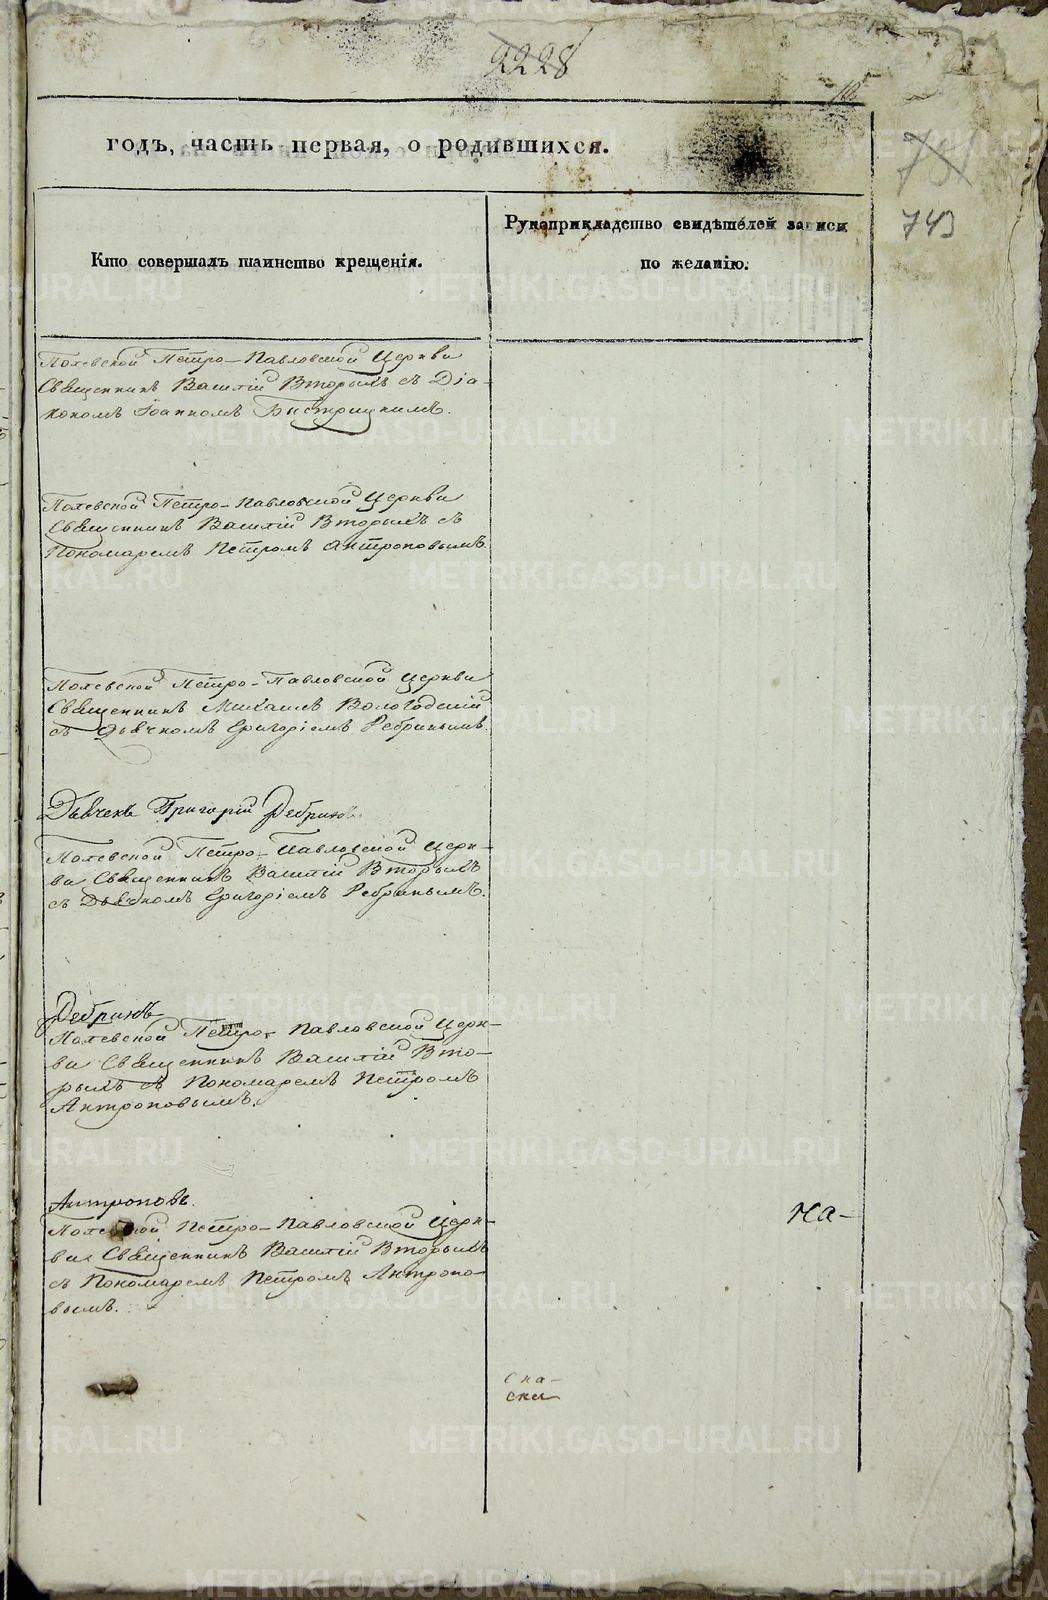 2228
743
годъ, часть первая, о родившихся.
Кто совершалъ таинство крещенія.
Рукоприкладство свидѣтелей записи
по желанію.
Полевской Петро-Павловской Церкви
Священникъ Василій Вторыхъ съ Діа-
кономъ Іоанномъ Быстрицкимъ.
Полевской Петро-Павловской Церкви
Священникъ Василій Вторыхъ съ
Пономаремъ Петромъ Антроповымъ.
Полевской Петро-Павловской Церкви
Священникъ Михаилъ Вологодскій
съ Дьячкомъ Григоріемъ Ребринымъ.
Дьячекъ Григорій Ребринъ
Полевской Петро-Павловской Церк-
ви Священникъ Василій Вторыхъ
съ Дьячкомъ Григоріемъ Ребринымъ.
Ребринъ
Полевской Петро-Павловской Церк-
ви Священникъ Василій Вто-
рыхъ съ Пономаремъ Петромъ
Антроповымъ.
Антроповъ.
Полевской Петро-Павловской Церк-
ви Священникъ Василій Вторыхъ
съ Пономаремъ Петромъ Антропо-
вымъ.
на-
METRIKI.GASO-URAL.RU